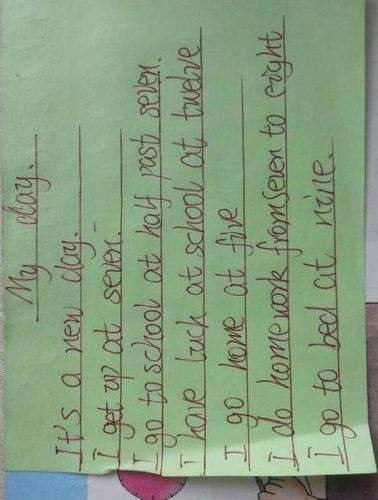 My day.
It's a new day.
I get up at seven.
I go to school at half past seven.
I have luch at school at twelve
I go home at five
I do homework from seven to eight
I go to bed at nine.